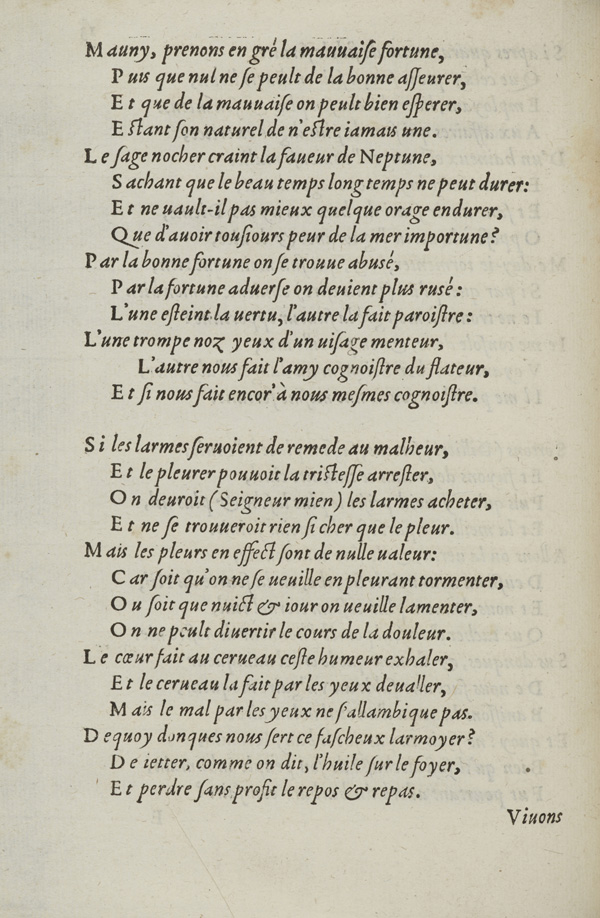 Mauny, prenons en gré la mauuaiſe fortune,
Puis que nul ne ſe peult de la bonne aſſeurer,
Et que de la mauuaiſe on peult bien eſperer,
Eſtant ſon naturel de n'eſtre iamais une.
Le ſage nocher craint la faueur de Neptune,
Sachant que le beau temps long temps ne peut durer:
Et ne uault-il pas mieux quelque orage endurer,
Que d'auoir touſiours peur de la mer importune?
Par la bonne fortune on ſe trouue abusé,
Par la fortune aduerſe on deuient plus rusé:
L'une eſteint la uertu, l'autre la fait paroiſtre:
L'une trompe noz yeux d'un uiſage menteur,
L'autre nous fait l'amy cognoiſtre du flateur,
Et ſi nous fait encor' à nous meſmes cognoiſtre.
Si les larmes ſeruoient de remede au malheur,
Et le pleurer pouuoit la triſteſſe arreſter,
On deuroit (Seigneur mien) les larmes acheter,
Et ne ſe trouueroit rien ſi cher que le pleur.
Mais les pleurs en effect ſont de nulle ualeur:
Car ſoit qu'on ne ſe ueuille en pleurant tormenter,
Ou ſoit que nuict & iour on ueuille lamenter,
On ne peult diuertir le cours de la douleur.
Le cœur fait au cerueau ceſte humeur exhaler,
Et le cerueau la fait par les yeux deualler,
Mais le mal par les yeux ne ſ'allambique pas.
Dequoy donques nous ſert ce faſcheux larmoyer?
De ietter, comme on dit, l'huile ſur le foyer,
Et perdre ſans profit le repos & repas.
Viuons